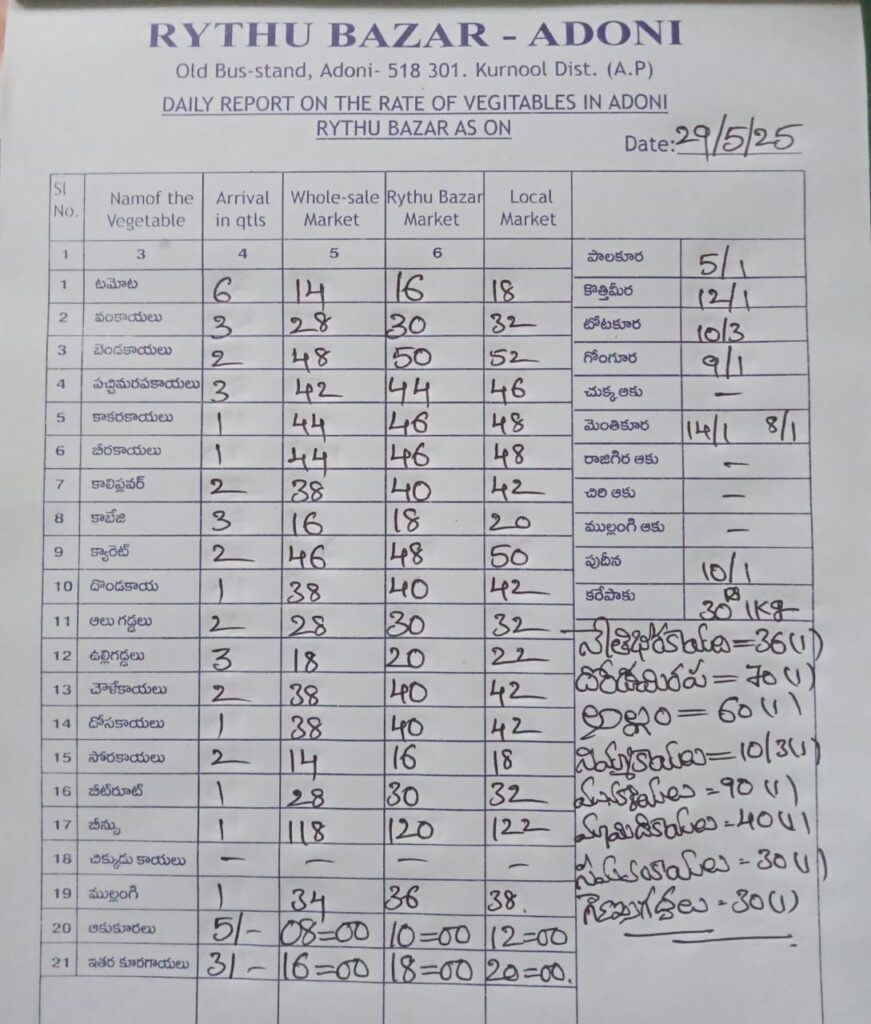 RYTHU BAZAR - ADONI
Old Bus-stand, Adoni- 518 301. Kurnool Dist. (A.P)
DAILY REPORT ON THE RATE OF VEGITABLES IN ADONI
RYTHU BAZAR AS ON
Date: 29/5/25
Sl No. Namof the Vegetable Arrival in qtls Whole-sale Market Rythu Bazar Market Local Market
1 3 4 5 6
1 టమోట 6 14 16 18
2 వంకాయలు 3 28 30 32
3 బెండకాయలు 2 48 50 52
4 పచ్చిమరపకాయలు 3 42 44 46
5 కాకరకాయలు 1 44 46 48
6 బీరకాయలు 1 44 46 48
7 కాలిఫ్లవర్ 2 38 40 42
8 కాబేజి 3 16 18 20
9 క్యారెట్ 2 46 48 50
10 దొండకాయ 1 38 40 42
11 ఆలు గడ్డలు 2 28 30 32
12 ఉల్లిగడ్డలు 3 18 20 22
13 చౌళేకాయలు 2 38 40 42
14 దోసకాయలు 1 38 40 42
15 సోరకాయలు 2 14 16 18
16 బీట్‌రూట్ 1 28 30 32
17 బీన్సు 1 118 120 122
18 చిక్కుడు కాయలు — — — —
19 ముల్లంగి 1 34 36 38.
20 ఆకుకూరలు 5/- 08=00 10=00 12=00
21 ఇతర కూరగాయలు 3/- 16=00 18=00 20=00.
పాలకూర 5/1
కొత్తిమీర 12/1
టోటకూర 10/3
గోంగూర 9/1
చుక్క ఆకు —
మెంతికూర 14/1 8/1
రాజగిర ఆకు —
చిరి ఆకు —
ముల్లంగి ఆకు —
పుదీన 10/1
కరేపాకు 30 1Kg
=36(1)
=70(1)
అల్లం=60(1)
నిమ్మకాయలు=10/3(1)
=90(1)
మామిడికాయలు=40(1)
=30(1)
=30(1)